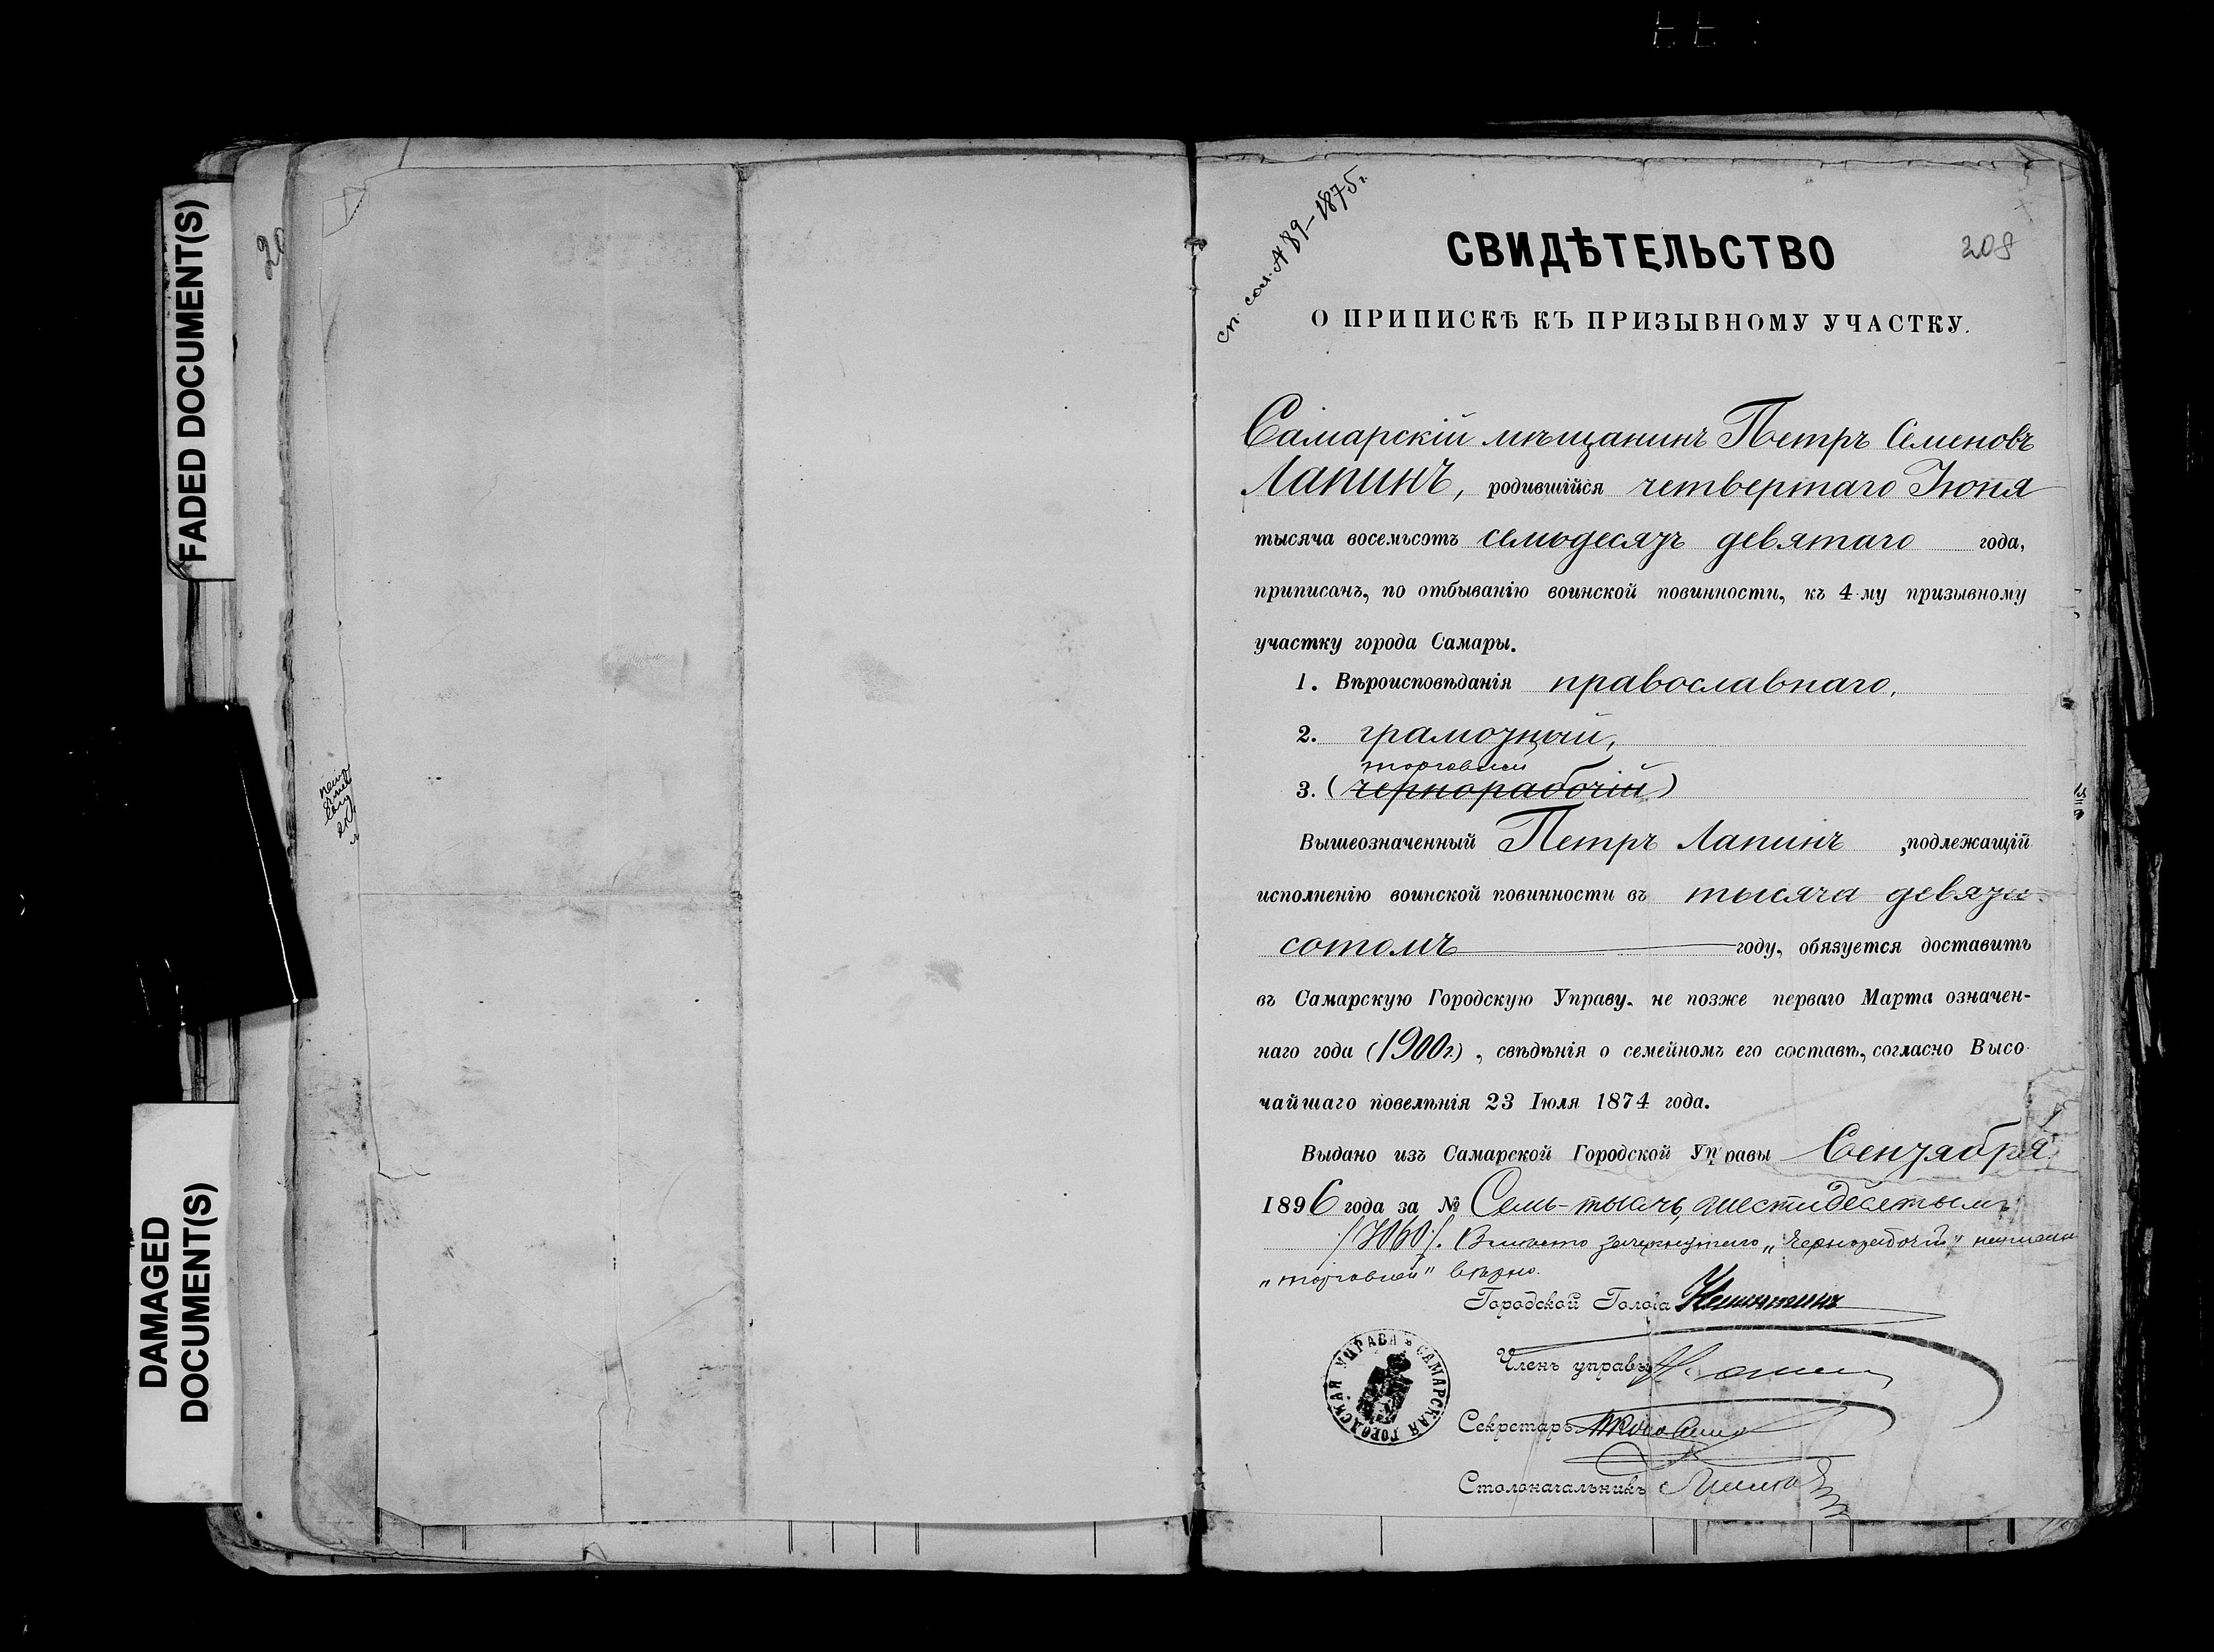 FADED DOCUMENT(S)
DAMAGED
DOCUMENT(S)
№ 89-1875г.
208
СВИДѢТЕЛЬСТВО
О ПРИПИСКѢ КЪ ПРИЗЫВНОМУ УЧАСТКУ.
Самарскій мѣщанинъ Петръ Семеновъ
Лапинъ, родившійся четвертаго Іюня
тысяча восемьсотъ семьдесятъ девятаго года,
приписанъ, по отбыванію воинской повинности, къ 4-му призывному
участку города Самары.
1. Вѣроисповѣданія православнаго,
2. грамотный,
торговый
3. (чернорабочій)
Вышеозначенный Петръ Лапинъ, подлежащій
исполненію воинской повинности въ тысяча девяти-
сотомъ году, обязуется доставить
въ Самарскую Городскую Управу, не позже перваго Марта означен-
наго года (1900г.), свѣдѣнія о семейномъ его составѣ, согласно Высо-
чайшаго повелѣнія 23 Іюля 1874 года.
Выдано изъ Самарской Городской Управы Сентября
1896 года за № Семь-тысячъ шестидесятымъ
/7060/. Вмѣсто зачеркнутаго „чернорабочій"
„торговый" вѣрно.
Городской Голова
Членъ управы
Секретарь
Столоначальникъ
САМАРСКАЯ ГОРОДСКАЯ УПРАВА